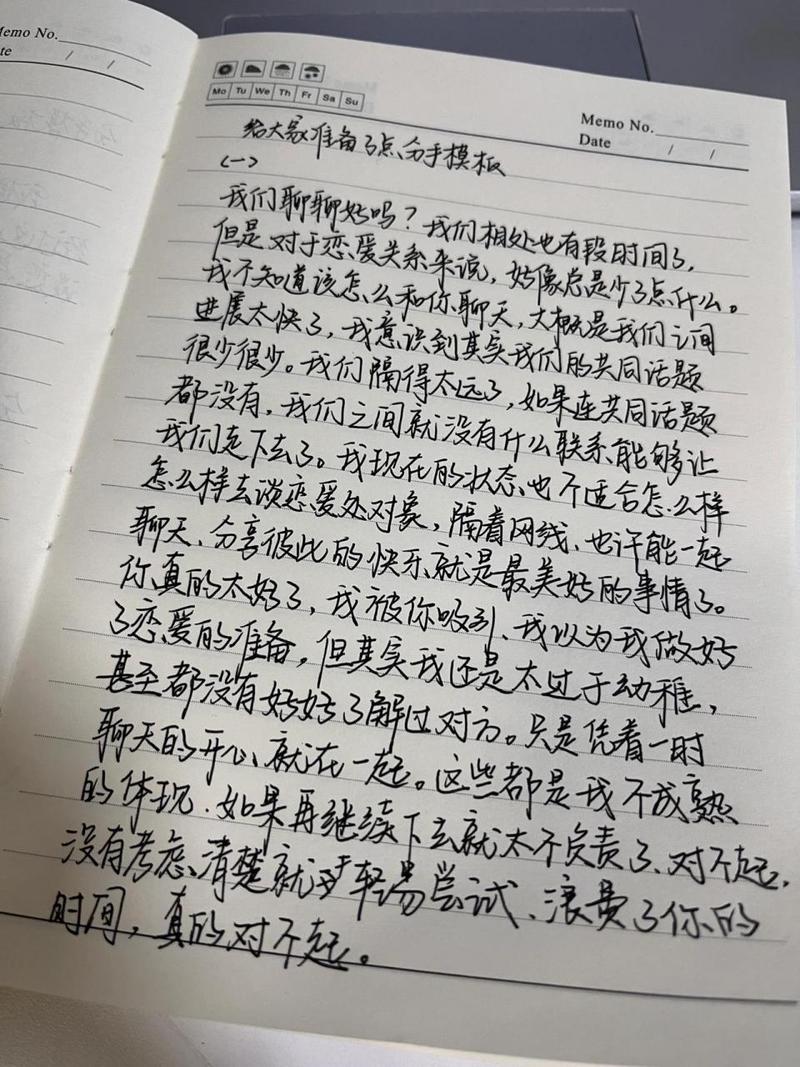 Memo No.
te / /
Mo Tu We Th Fr Sa Su
Memo No.
Date / /
给大家准备了点分手模板
(一)
我们聊聊好吗？我们相处也有段时间了，
但是对于恋爱关系来说，好像总是少了点什么。
我不知道该怎么和你聊天，大概是我们之间
进展太快了，我意识到其实我们的共同话题
很少很少。我们隔得太远了，如果连共同话题
都没有，我们之间就没有什么联系能够让
我们走下去了。我现在的状态也不适合怎么样
怎么样去谈恋爱处对象，隔着网线、也许能一起
聊天、分享彼此的快乐就是最美好的事情了。
你真的太好了，我被你吸引、我以为我做好
了恋爱的准备，但其实我还是太过于幼稚，
甚至都没有好好了解过对方。只是凭着一时
聊天的开心就在一起。这些都是我不成熟
的体现.如果再继续下去就太不负责了、对不起，
没有考虑清楚就轻易尝试、浪费了你的
时间，真的对不起。